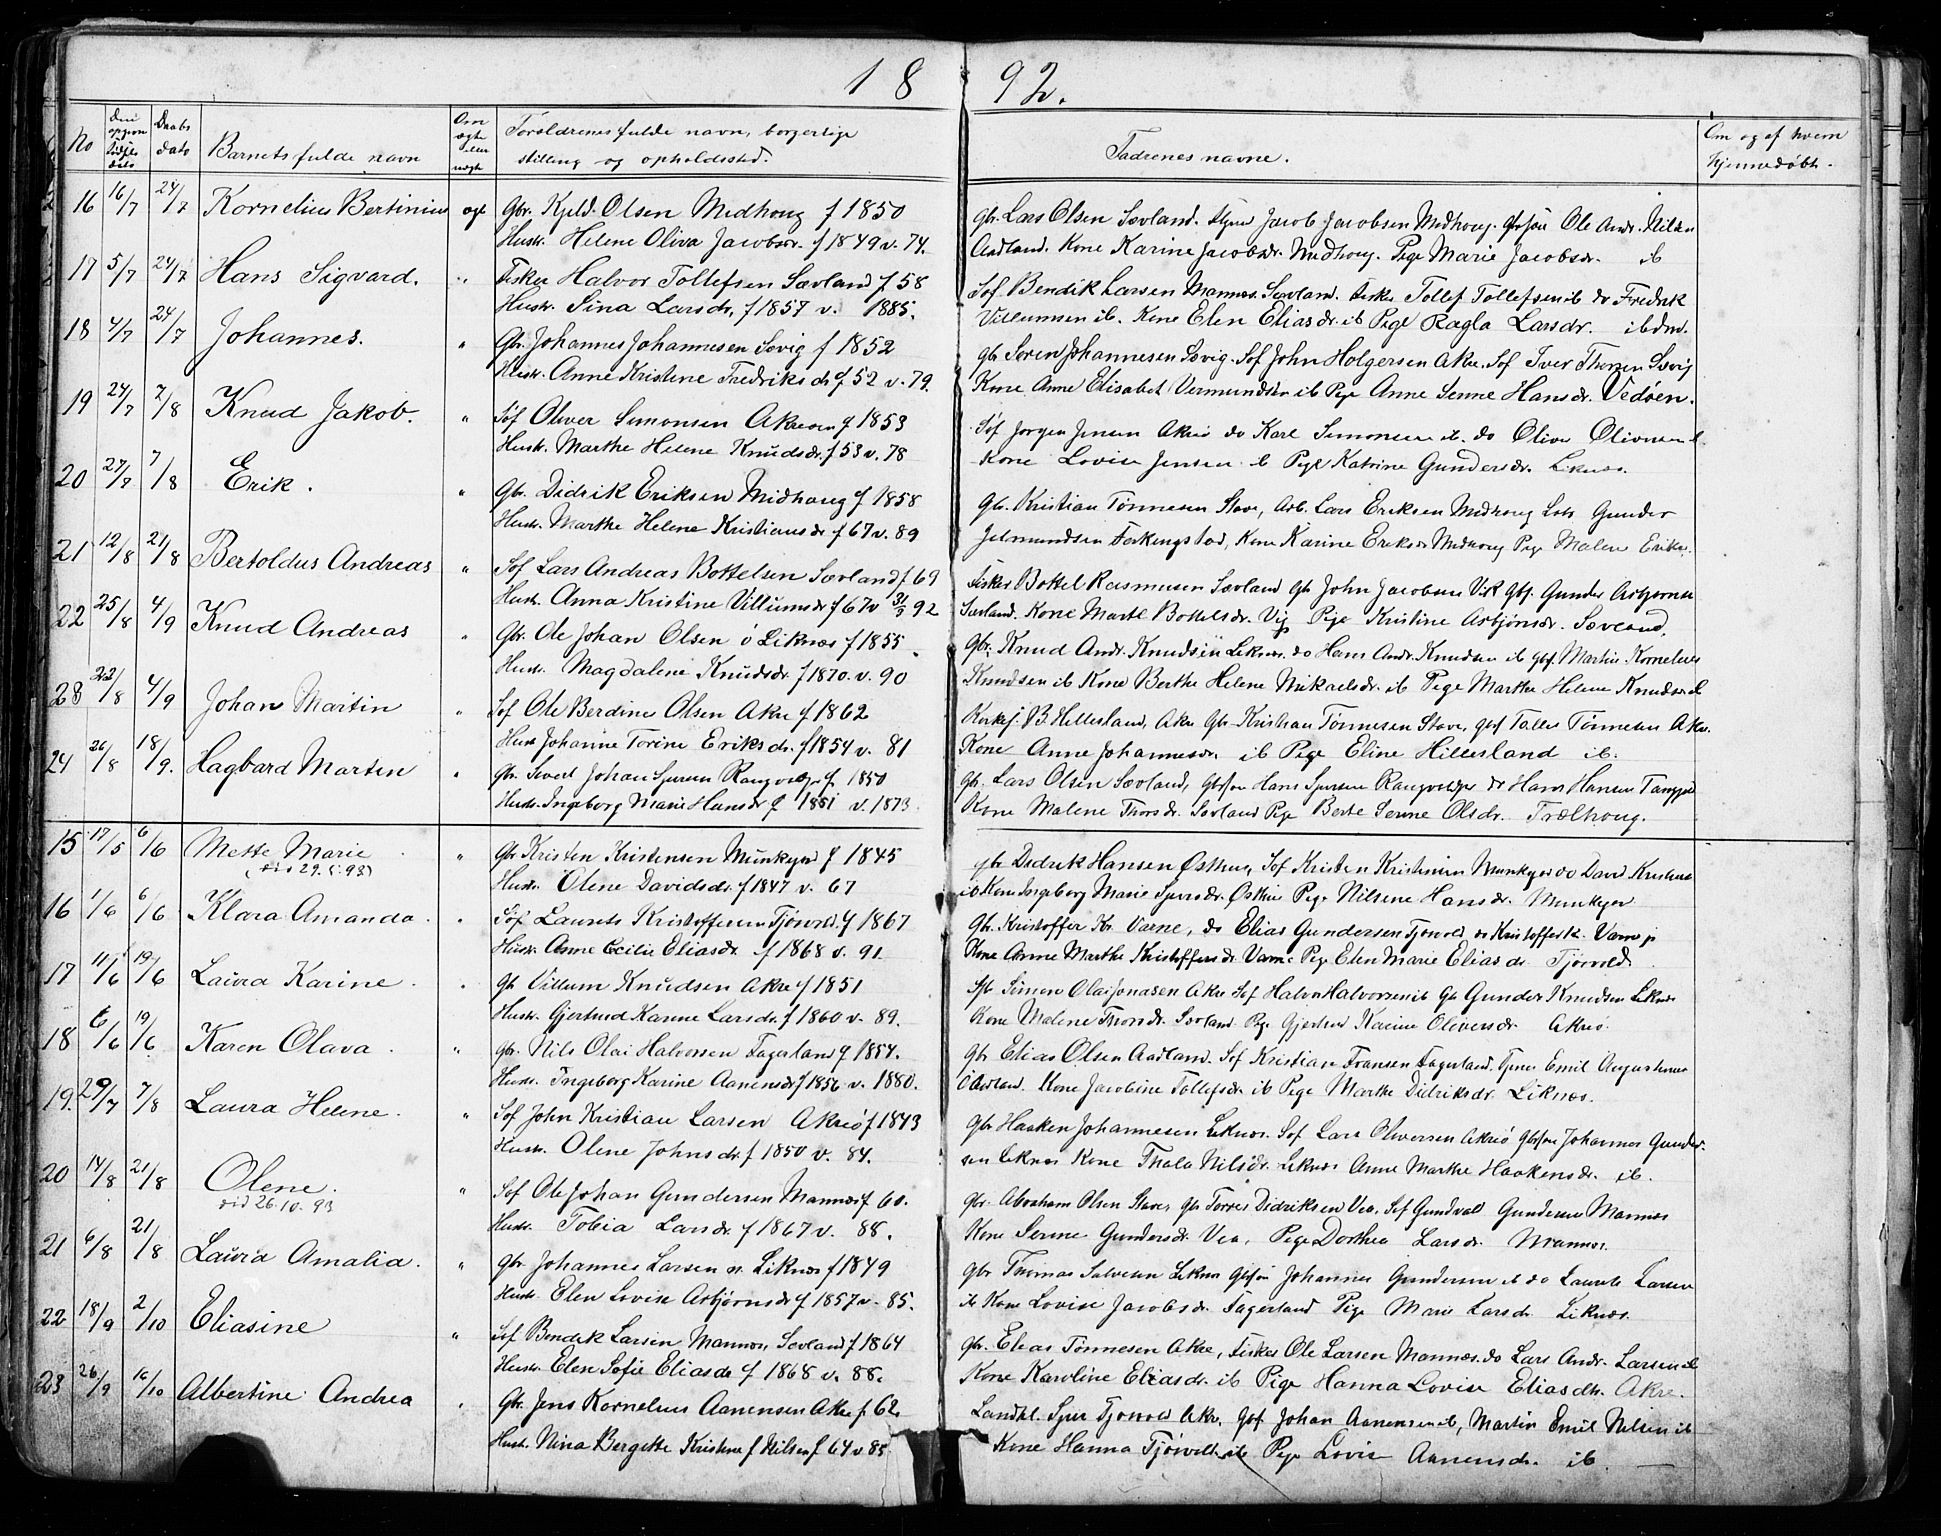 1892.
No
Den opgivne fødsels dato
Daabs dato
Barnets fulde navn
Om ægte eller uægte
Foreldrenes fulde navn, borgerlige
stilling og opholdssted.
Fadrenes navne.
Om og af hvem
hjemmedøbt.
16 16/7 24/7 Kornelius Bertinius ægt Gbr. Kjeld Olsen Midhoug f 1850
Hustr. Helene Oliva Jacobsdr. f 1849 v. 74.
Gbr. Lars Olsen Sævland. Jacob Jacobsen Midhoug. Ole Andr. Nilsen
Aadland. Kone Karine Jacobsdr. Midhoug. Pige Marie Jacobsdr. ib
17 5/7 24/7 Hans Sigvard. " Fisker Halvor Tollefsen Sævland f 58
Hustr. Sina Larsdr. f 1857 v. 1885.
Sof. Bendik Larsen Mannes. Sævland. Fisker Tollef Tollefsen ib do Fredrik
Villumsen ib. Kone Elen Eliasdr. ib Pige Ragla Larsdr. ibdm.
18 4/7 24/7 Johannes. " Gbr. Johannes Johannesen Sevig f 1852
Hustr. Anne Kristine Fredriksdr. f 52 v. 79.
Gbr Soren Johannesen Sevig. Sof John Holgersen Akre. Sof Iver Thorsen Sevig
Kone Anne Elisabet Vermundsen ib Pige Anne Senne Hansdr. Vedøen.
19 24/7 7/8 Knud Jakob. " Sof Oliver Simonsen Akreøen f 1853
Hustr. Marthe Helene Knudsdr. f 53 v. 78
Sof Jorgen Jensen Akreø do Karl Simonsen ib. do Oliver Oliversen ib
Kone Lovise Jensen ib Pige Katrine Gundersdr. Liknes.
20 27/7 7/8 Erik. " Gbr. Didrik Eriksen Midhaug f 1858
Hustr. Marthe Helene Kristiansdr f 67 v. 89
Gbr. Kristian Tønnesen Stave, Arb. Lars Eriksen Midhoug Gunder
Jelmundsen Ferkingstad, Kone Karine Eriksdr Midhoug Pige Malene Eriksdr.
21 12/8 21/8 Bertoldus Andreas " Sof Lars Andreas Bottelsen Sævland f 69
Hustr. Anna Kristine Villumsdr f 67 v 31/3 92
Fisker Bottel Rasmusen Sævland Gbr John Jacobsen Vik Gunder Astjornsen
Sævland. Kone Marte Bottelsdr. Vik Pige Kristine Astjønsdr. Sævland.
22 25/8 4/9 Knud Andreas " Gbr. Ole Johan Olsen ø Liknæs f 1855
Hustr. Magdalene Knudsdr. f 1870. v. 90
Gbr. Knud Andr. Knudsen Liknes. do Hans Andr. Knudsen ib Martin Kornelius
Knudsen ib Kone Berthe Helene Mikaelsdr. ib Pige Marthe Helene Knudsdr ib
23 22/8 4/9 Johan Martin " Sof Ole Berdines Olsen Akre f 1862
Hust Johanne Torine Eriksdr. f 1854 v. 81
Kirkesj. B. Hillesland, Akre Gbr Kristian Tønnesen Stave, Tønnesen Akre.
Kone Anne Johannesdr. ib Pige Eline Hillesland ib.
24 26/8 18/9. Hagbard Martin " Gbr. Sivert Johan f 1850
Hustr. Ingeborg Marie Hansdr f 1851 v. 1873.
Gbr. Lars Olsen Sævland, Hans do Hans Hansen
Kone Malene Thorsdr. Sævland Pige Berte Serine Olsdr. Trælhoug.
15 17/5 6/6 Mette Marie " Gbr Kristen Kristensen Munkejord f 1845
(død 29.5.93)
Hustr. Olene Davidsdr. f 1847 v. 67
Gbr Didrik Hansen Østhus, Sof Kristen Kristensen Munkejord do David Kristensen
ib Kone Ingeborg Marie Østhus Pige Nilsene Hansdr. Munkejor
16 1/6 6/6 Klara Amanda. " Sof. Laurets Kristoffersen Tjøsvold f 1867
Hustr. Anne Cecilie Eliasdr f 1868 v. 91.
Gbr. Kristoffer Kr. Varne, do Elias Gundersen Tjosvold
Kone Anne Marthe Kristoffersdr. Varne Pige Elen Marie Eliasdr. Tjosvold.
17 11/6 19/6 Laura Karine. " Gbr Villum Knudsen Akre f 1851
Hustr. Gjertrud Karine Larsdr. f 1860 v. 89.
Simon Olai Jonasen Akre Sof Halvor Halvorsen ib Gbr Gunder Knudsen Liknes
Kone Malene Thorsdr. Sævland Pige Gjertrud Karine Oliversdr Akreø.
18 6/6 19/6 Karen Olava. " Gbr. Nils Olai Halvorsen Fagerland f 1854.
Hustr. Ingeborg Karine Aanensdr. f 1856 v. 1880.
Gbr Elias Olsen Aadland. Sof Kristian Fransen Fagerland. Tjener Emil Augustinus
Aadland. Kone Jacobine Tollefsdr. ib Pige Marthe Didriksdr. Liknes.
19. 29/7 7/8 Laura Helene. " Sof John Kristian Larsen Akreø f 1843
Hustr. Olene Johnsdr. f 1850 v. 84.
Gbr Haaken Johannesen Liknes. Sof Lars Oliversen Akreø Johannes Gunder-
sen Liknes Kone Thala Nilsdr. Liknes Anne Marthe Haakensdr. ib.
20 14/8 21/8 Olene. " Sof Ole Johan Gundersen Mannes f 60.
død 26.10.93
Hustr. Tobia Larsdr f 1867 v. 88.
Gbr. Abraham Olsen Stave, Gbr Torres Didriksen Vea, Sof Gundvald Gundersen Mannes
Kone Serine Gundersdr. Vea, Pige Dorthea Larsdr Mannes.
21 6/8 21/8 Laura Amalia. " Gbr Johannes Larsen Liknes f 1849
Hustr. Elen Lovise Astjørnsdr f 1857 v. 85.
Gbr Thomas Salvesen Liknes Johannes Gundersen ib do Laurits Larsen
ib Kone Lovise Jacobsdr. Fagerland Pige Marie Larsdr Liknes.
22 18/9 2/10 Eliasine " Sof Bendik Larsen Mannes, Sævland f 1864
Hustr. Elen Sofie Eliasdr f 1868 v. 88.
Gbr. Elias Tønnesen Akre, Fisker Ole Larsen Mannes. do Lars Andr. Larsen ib
Kone Karoline Eliasdr. ib Pige Hanna Lovise Eliasdtr. Akre.
23 26/9 16/10 Albertine Andrea " Gbr. Jens Kornelius Aanensen Akre f. 62.
Hustr. Nina Bergitte Kristine f Nilsen f 64 v 85
Landhl. Tjosvold Akre, Johan Aanensen ib, Martin Emil Nilsen ib
Kone Hanna Tjøsvold ib Pige Lovise Aanensdr. ib.